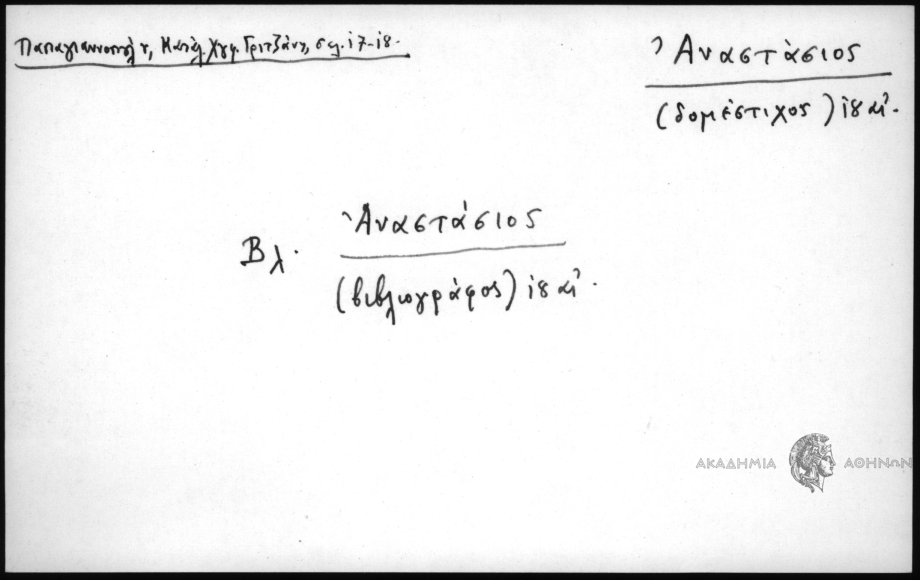 Παπαγιαννοπούλου, Κατάλ. Χγφ. Γριτζάνη, σελ. 17-18.
Ἀναστάσιος
(δομέστιχος) 18 αἰ.
Βλ. Ἀναστάσιος
(βιβλιογράφος) 18 αἰ.
ΑΚΑΔΗΜΙΑ ΑΘΗΝΩΝ